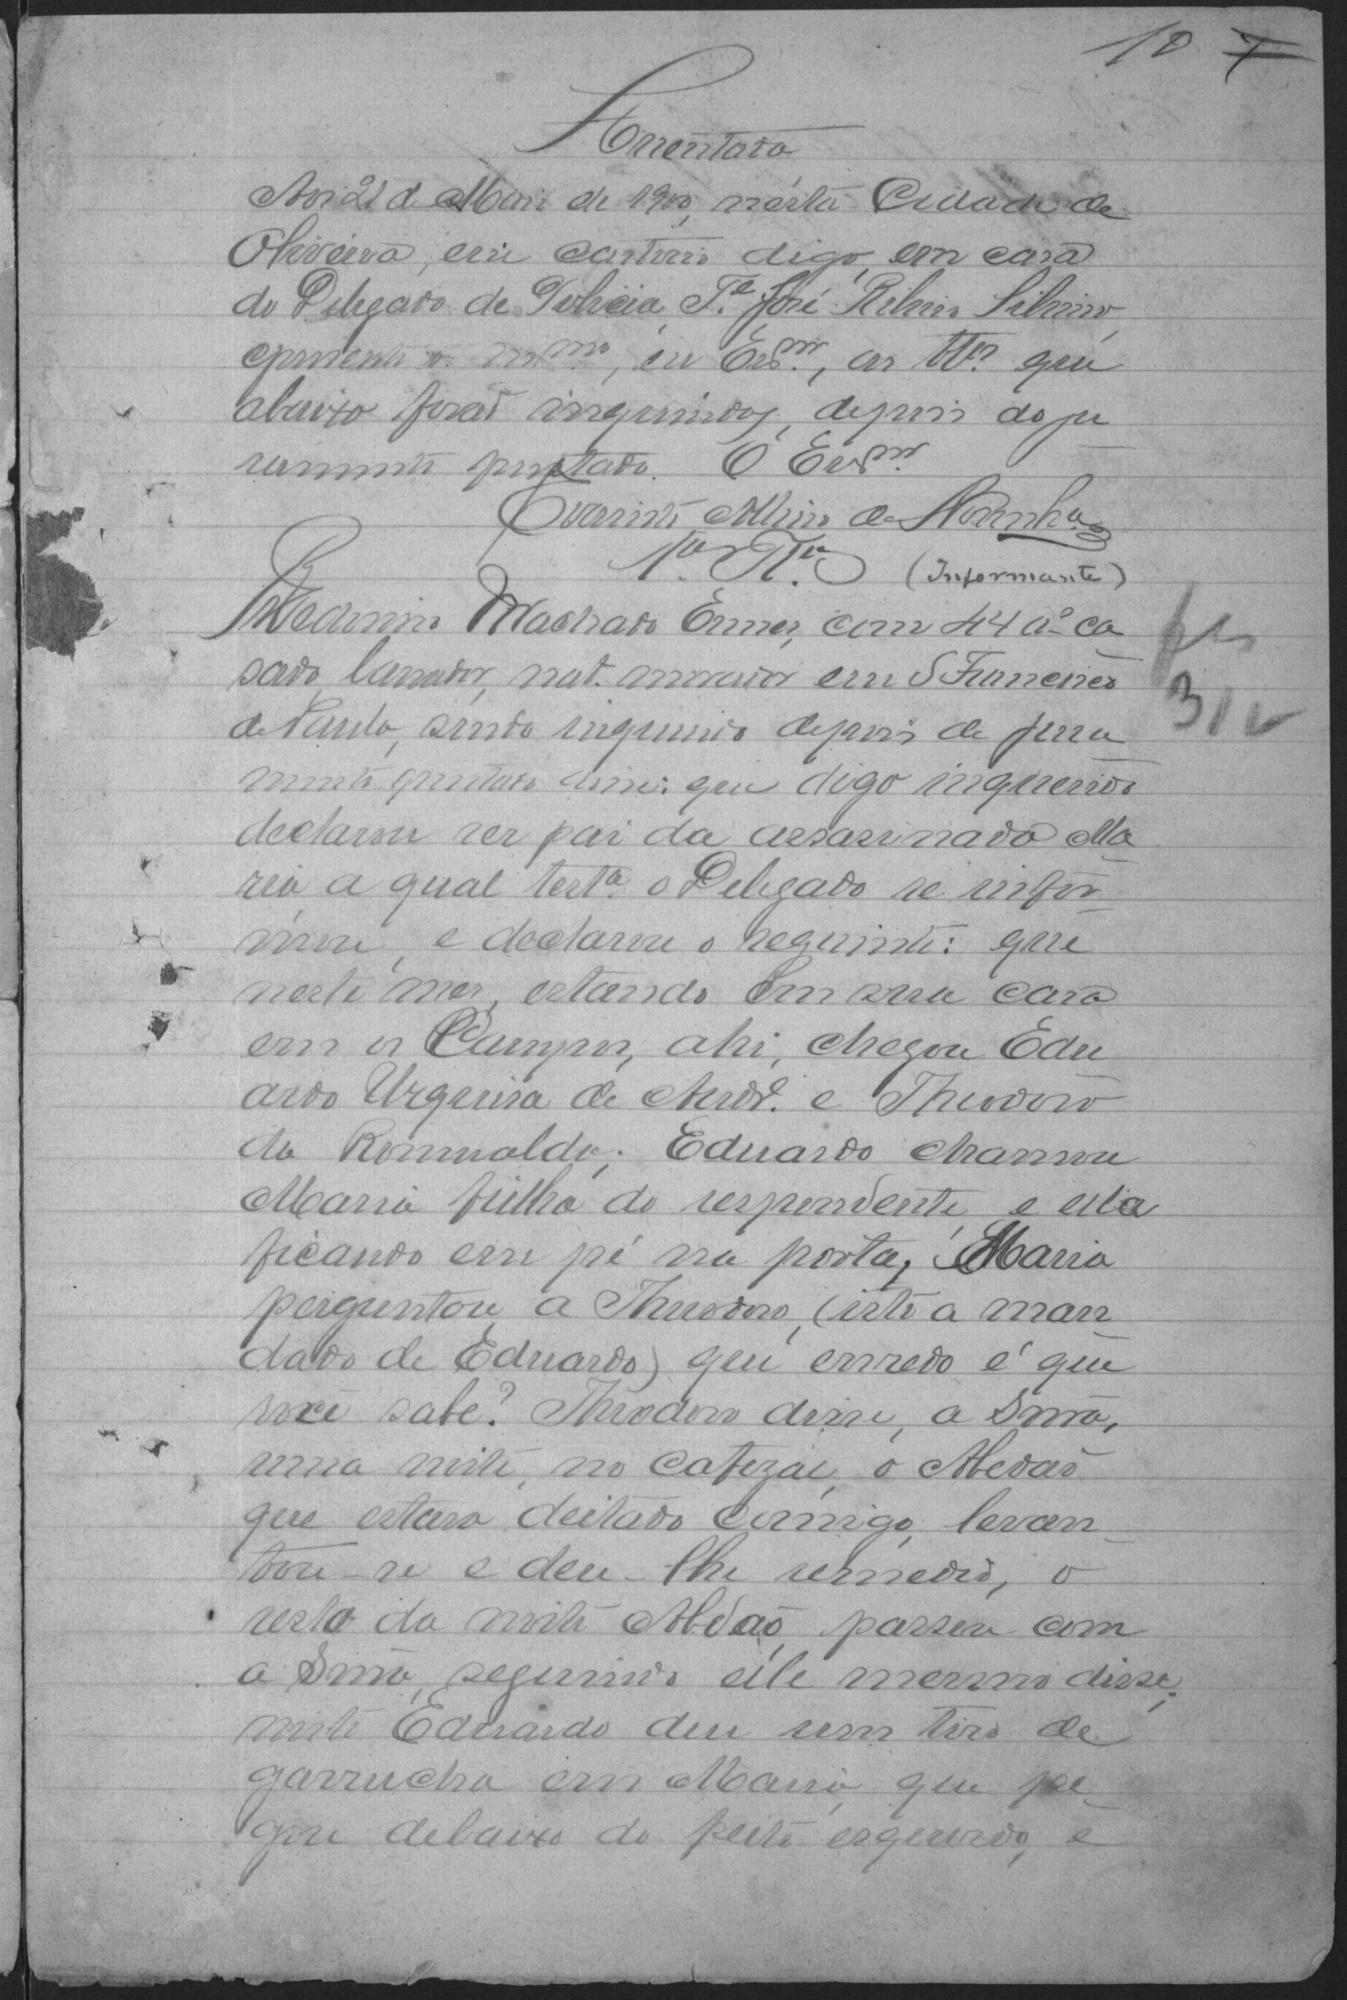 10 7
Assentada
Aos 21 de Maio de 1900, nesta Cidade de
Oliveira, em cartorio digo, em casa
do Delegado de Policia T.e José Ribeiro Silvino,
commigo, eu Esc.am, as tt.as que
abaixo forão inqueridas, depois do ju
ramento prestado. O Escr.am
Evaristo de Noronha
1.a Tt.a (Informante)
Machado Ennes, com 44 a.os ca
sado, lavrador, nat. morador em S Francisco
de Paula, sendo inquerido depois de jura
mento prestado disse: que digo inquerido
declarou ser pai da assassinada Ma
ria a qual test.a o Delegado se infor-
mou, e declarou o seguinte: que
neste mes, estando em sua casa
em os Campos, ahi, chegou Edu
ardo Urqueisa de Andr.e e Theodoro
do Romualdo; Eduardo chamou
Maria filha do respondente, e ella
ficando em pé na porta, Maria
perguntou a Theodoro, (isto a man
dado de Eduardo) que enredo é que
você sabe? Theodoro disse, a Snra,
uma noite, no cafezal, o Abdão
que estava deitado comigo, levan-
tou-se e deu-lhe remedio, o
resto da noite Abdão, passou com
a Snra, segundo elle mesmo disse;
nisto Eduardo deu um tiro de
garrucha em Maria, que pe-
gou debaixo do peito esquerdo, e
fls
31v